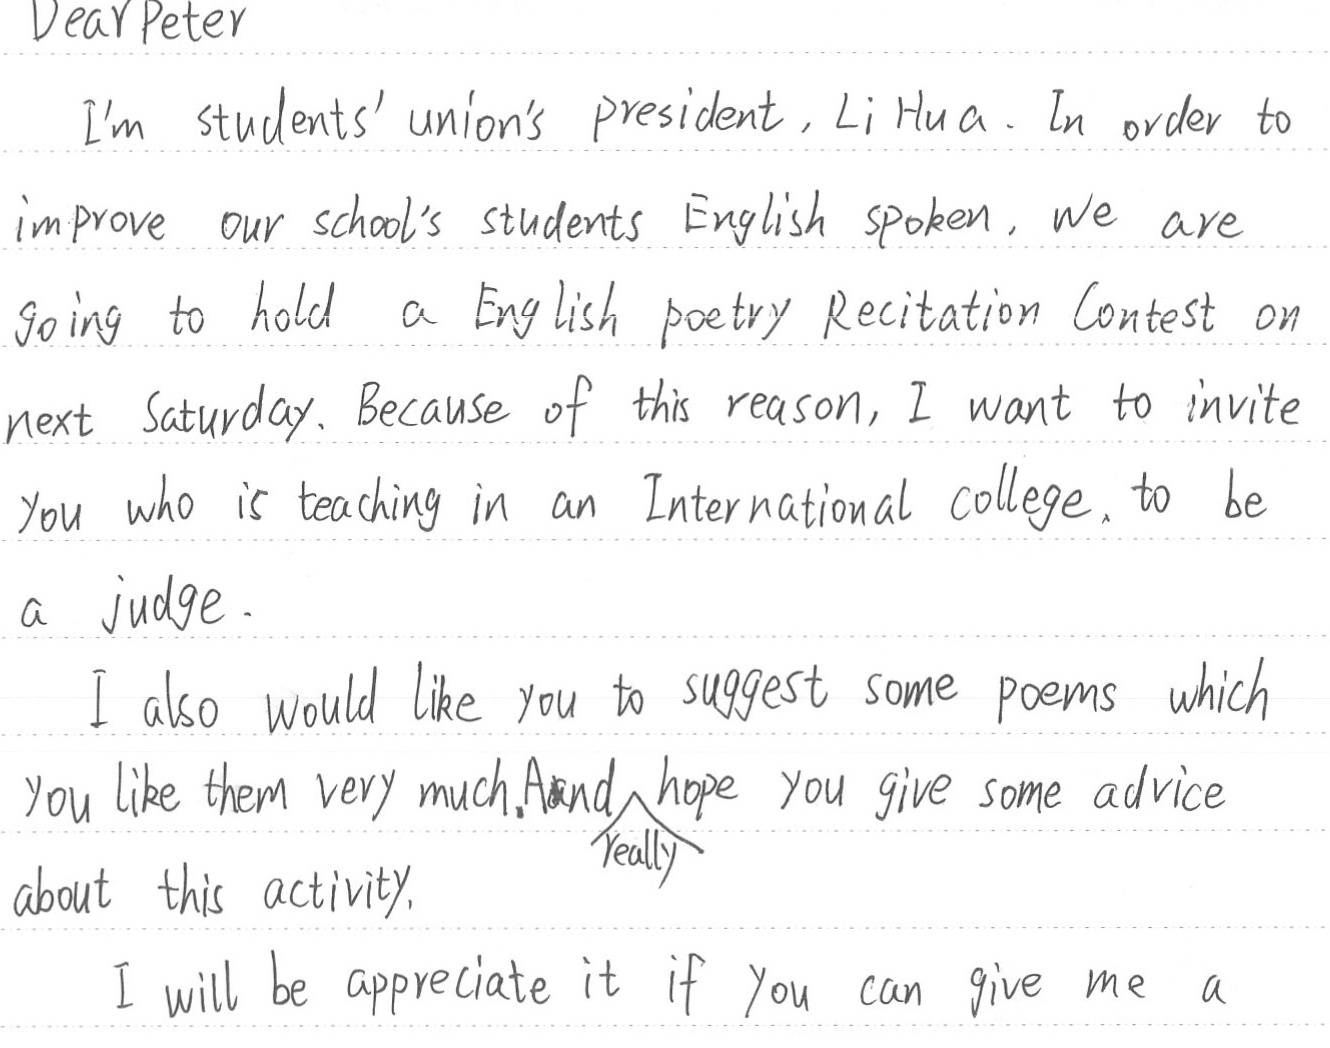 Dear Peter
I'm students' union's president, Li Hua. In order to
improve our school's students English spoken, we are
going to hold a English poetry Recitation Contest on
next Saturday. Because of this reason, I want to invite
you who is teaching in an International college, to be
a judge.
I also would like you to suggest some poems which
you like them very much. And really hope you give some advice
about this activity.
I will be appreciate it if you can give me a